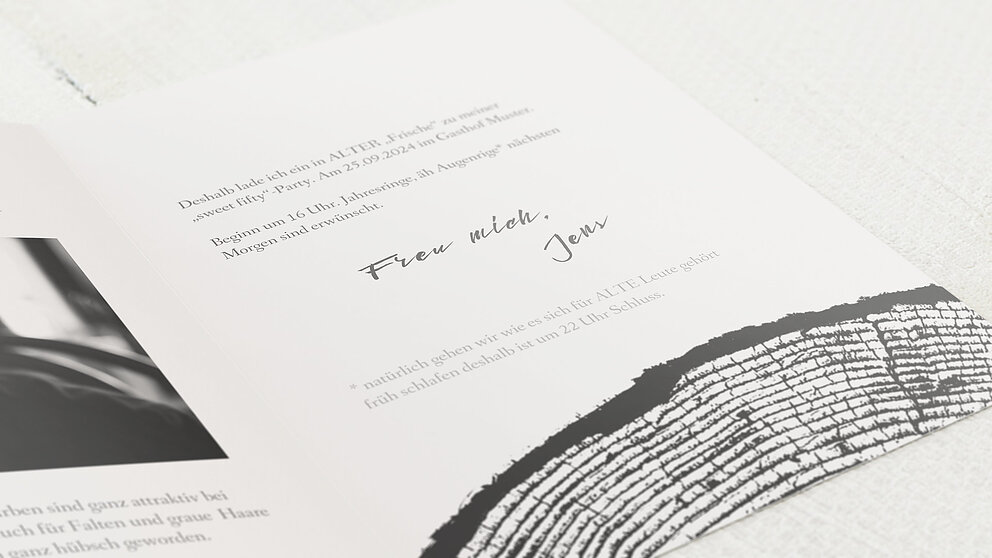 Deshalb lade ich ein in ALTER „Frische“ zu meiner
„sweet fifty“-Party. Am 25.09.2024 im Gasthof Muster.
Beginn um 16 Uhr. Jahresringe, äh Augenrige* nächsten
Morgen sind erwünscht.
Freu mich,
Jens
* natürlich gehen wir wie es sich für ALTE Leute gehört
früh schlafen deshalb ist um 22 Uhr Schluss.
sind ganz attraktiv bei
für Falten und graue Haare
ganz hübsch geworden.